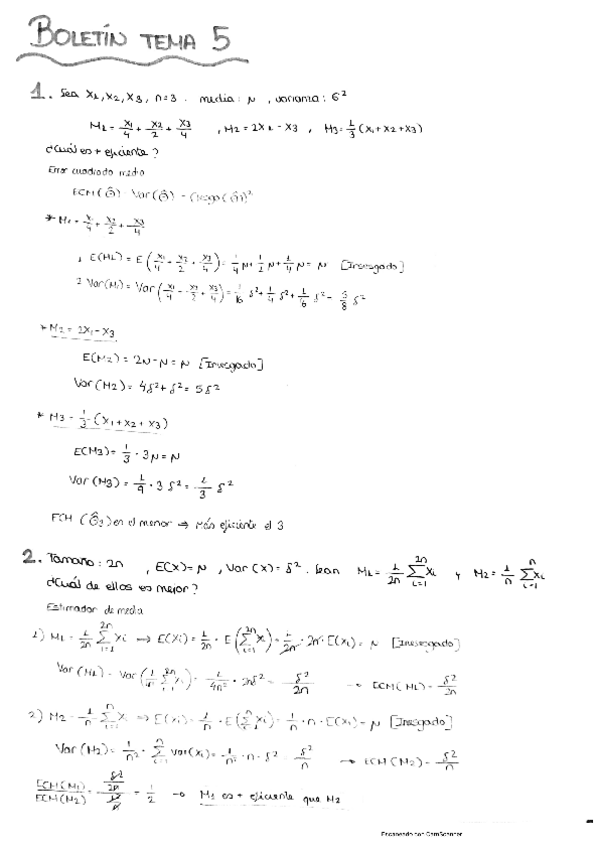 BOLETÍN TEMA 5
1. Sea X1, X2, X3, n=3. media: μ, varianza: σ²
M1 = X1/4 + X2/2 + X3/4 , M2 = 2X1 - X3 , M3 = 1/3 (X1 + X2 + X3)
¿Cuál es + eficiente?
Error cuadrado medio
ECM(θ̂) = Var(θ̂) + (sesgo(θ̂))²
* M1 = X1/4 + X2/2 + X3/4
1. E(M1) = E(X1/4 + X2/2 + X3/4) = 1/4 μ + 1/2 μ + 1/4 μ = μ [Insesgado]
2. Var(M1) = Var(X1/4 + X2/2 + X3/4) = 1/16 σ² + 1/4 σ² + 1/16 σ² = 3/8 σ²
* M2 = 2X1 - X3
E(M2) = 2μ - μ = μ [Insesgado]
Var(M2) = 4σ² + σ² = 5σ²
* M3 = 1/3 · (X1 + X2 + X3)
E(M3) = 1/3 · 3μ = μ
Var(M3) = 1/9 · 3σ² = 1/3 σ²
ECM (θ̂3) es el menor ⇒ Más eficiente el 3
2. Tamaño: 2n , E(X) = μ , Var(X) = σ². Sean M1 = 1/2n 2n∑i=1 Xi y M2 = 1/n n∑i=1 Xi
¿Cuál de ellos es mejor?
Estimador de media
1) M1 = 1/2n 2n∑i=1 Xi ⇒ E(Xi) = 1/2n · E(2n∑i=1 Xi) = 1/2n · 2n · E(Xi) = μ [Insesgado]
Var(M1) = Var(1/2n 2n∑i=1 Xi) = 1/4n² · 2nσ² = σ²/2n → ECM(M1) = σ²/2n
2) M2 = 1/n n∑i=1 Xi ⇒ E(Xi) = 1/n · E(n∑i=1 Xi) = 1/n · n · E(Xi) = μ [Insesgado]
Var(M2) = 1/n² · n∑i=1 Var(Xi) = 1/n² · n · σ² = σ²/n → ECM(M2) = σ²/n
ECM(M1)/ECM(M2) = (σ²/2n)/(σ²/n) = 1/2 → M1 es + eficiente que M2
Escaneado con CamScanner